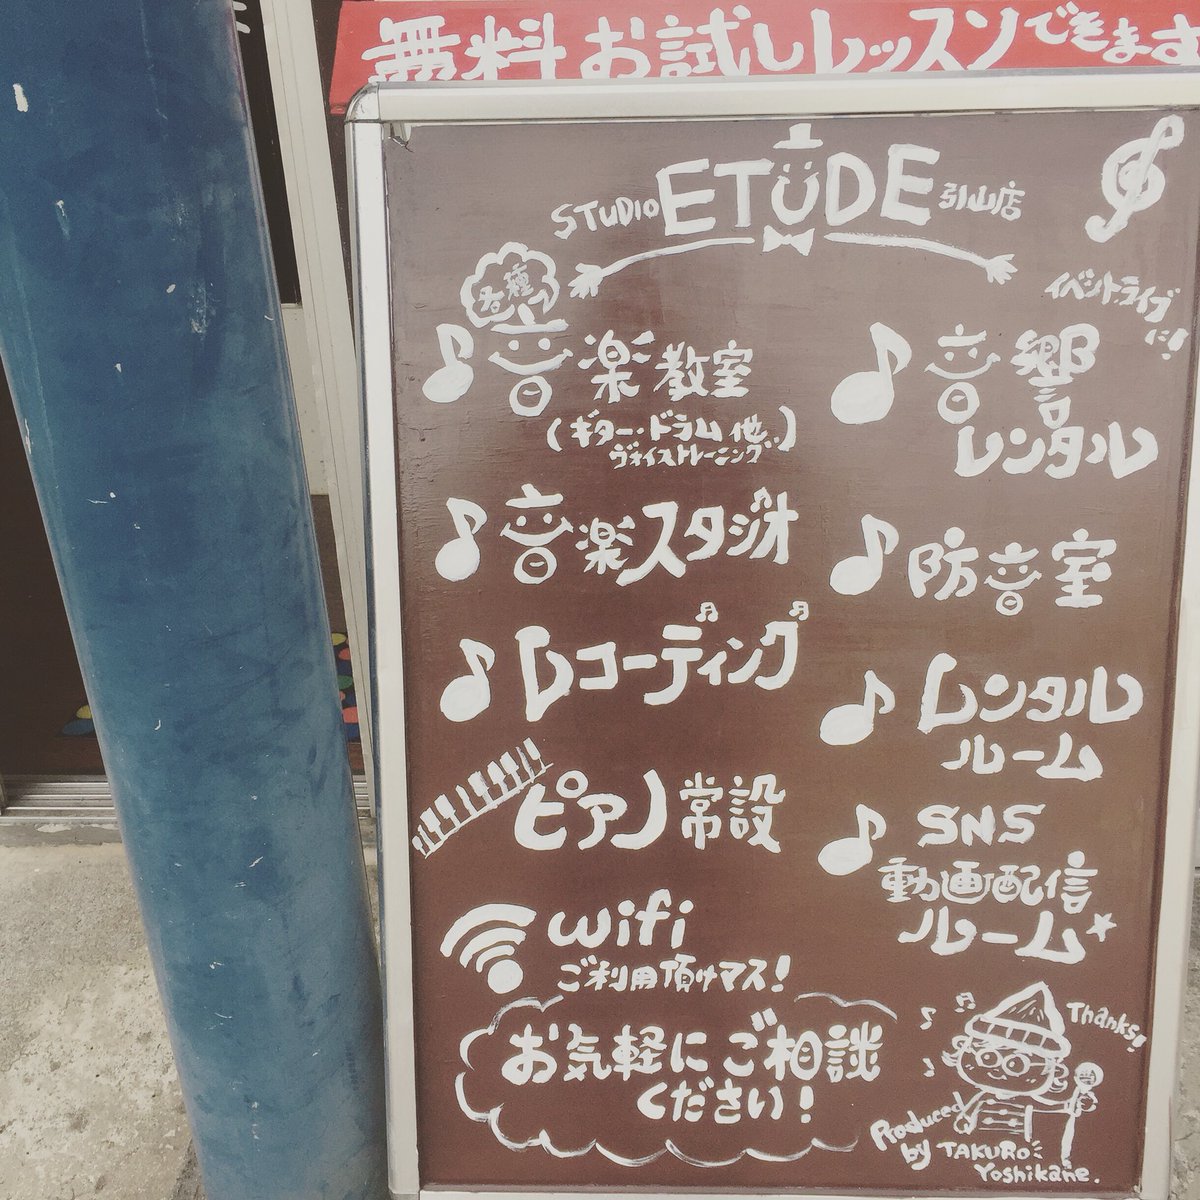 無料お試しレッスンできます
STUDIO ETUDE 引山店
各種
音楽教室
(ギター・ドラム他..)
ヴォイストレーニング
音楽スタジオ
レコーディング
ピアノ常設
wifi
ご利用頂けマス!
イベント・ライブ
に!
音響
レンタル
防音室
レンタル
ルーム
SNS
動画配信
ルーム
お気軽にご相談
ください!
Thanks!
Produced
by TAKURO
Yoshikane.